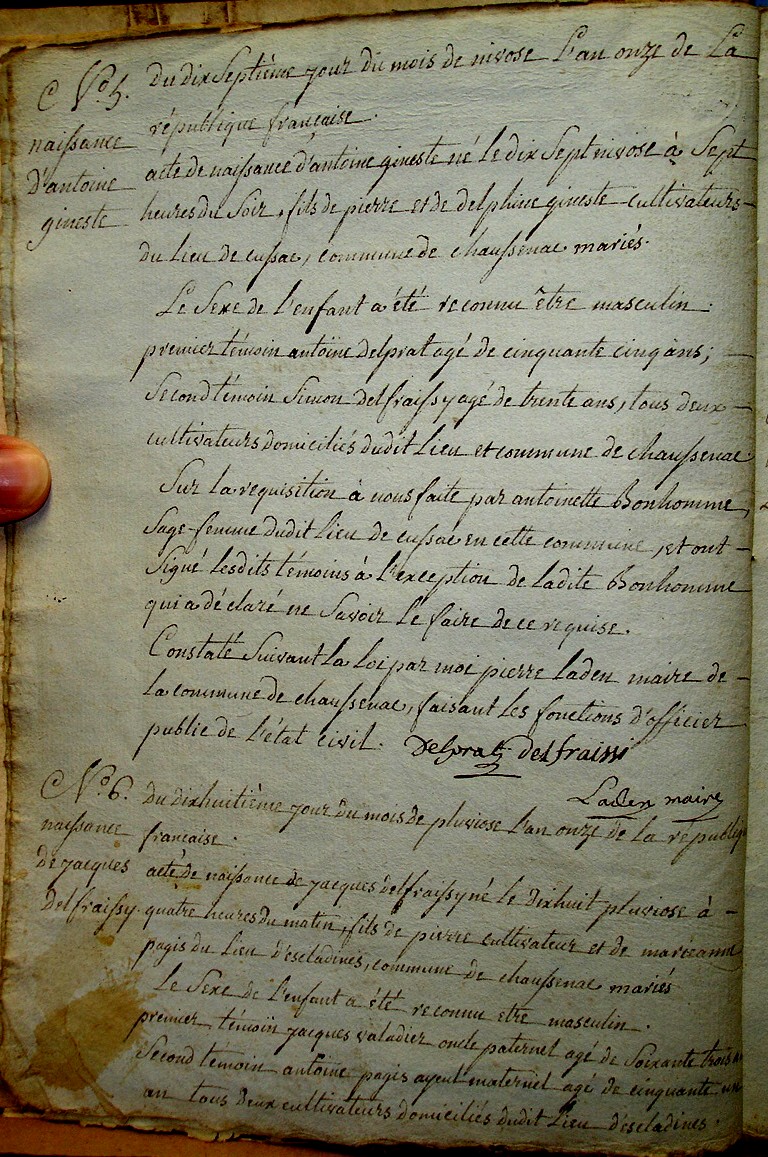 N.º 5.
naissance
D'antoine
gineste
Du dix Septième jour du mois de nivose L'an onze de La
république française.
acte de naissance d'antoine gineste né le dix Sept nivose à Sept
heures du Soir, fils de pierre et de delphine gineste cultivateurs
du Lieu de cussac, commune de chaussenac mariés.
Le Sexe de l'enfant a été reconnu être masculin.
premier témoin antoine delprat agé de cinquante cinq ans;
Second témoin Simon delfraissy agé de trente ans, tous deux
cultivateurs domiciliés dudit Lieu et commune de chaussenac
Sur la requisition à nous faite par antoinette Bonhomme,
Sage-femme dudit Lieu de cussac en cette commune, et ont
Signé Lesdits témoins à L'exception de ladite Bonhomme
qui a déclaré ne Savoir le faire de ce requise.
Constaté Suivant La Loi par moi pierre Laden maire de
la commune de chaussenac, faisant Les fonctions d'officier
public de L'état civil. Delprat delfraissi
Laden maire
N.º 6.
naissance
de jacques
Delfraissy.
du dixhuitième jour du mois de pluviose L'an onze de la républiq
française.
acte de naissance de jacques delfraissy né le dixhuit pluviose à
quatre heures du matin, fils de pierre cultivateur et de marianne
pagis du Lieu d'escladines, commune de chaussenac mariés
Le Sexe de L'enfant a été reconnu etre masculin.
premier témoin jacques valadier oncle paternel agé de Soixante trois
Second témoin antoine pagis ayeul maternel agé de cinquante un
an tous deux cultivateurs domiciliés dudit Lieu d'escladines.